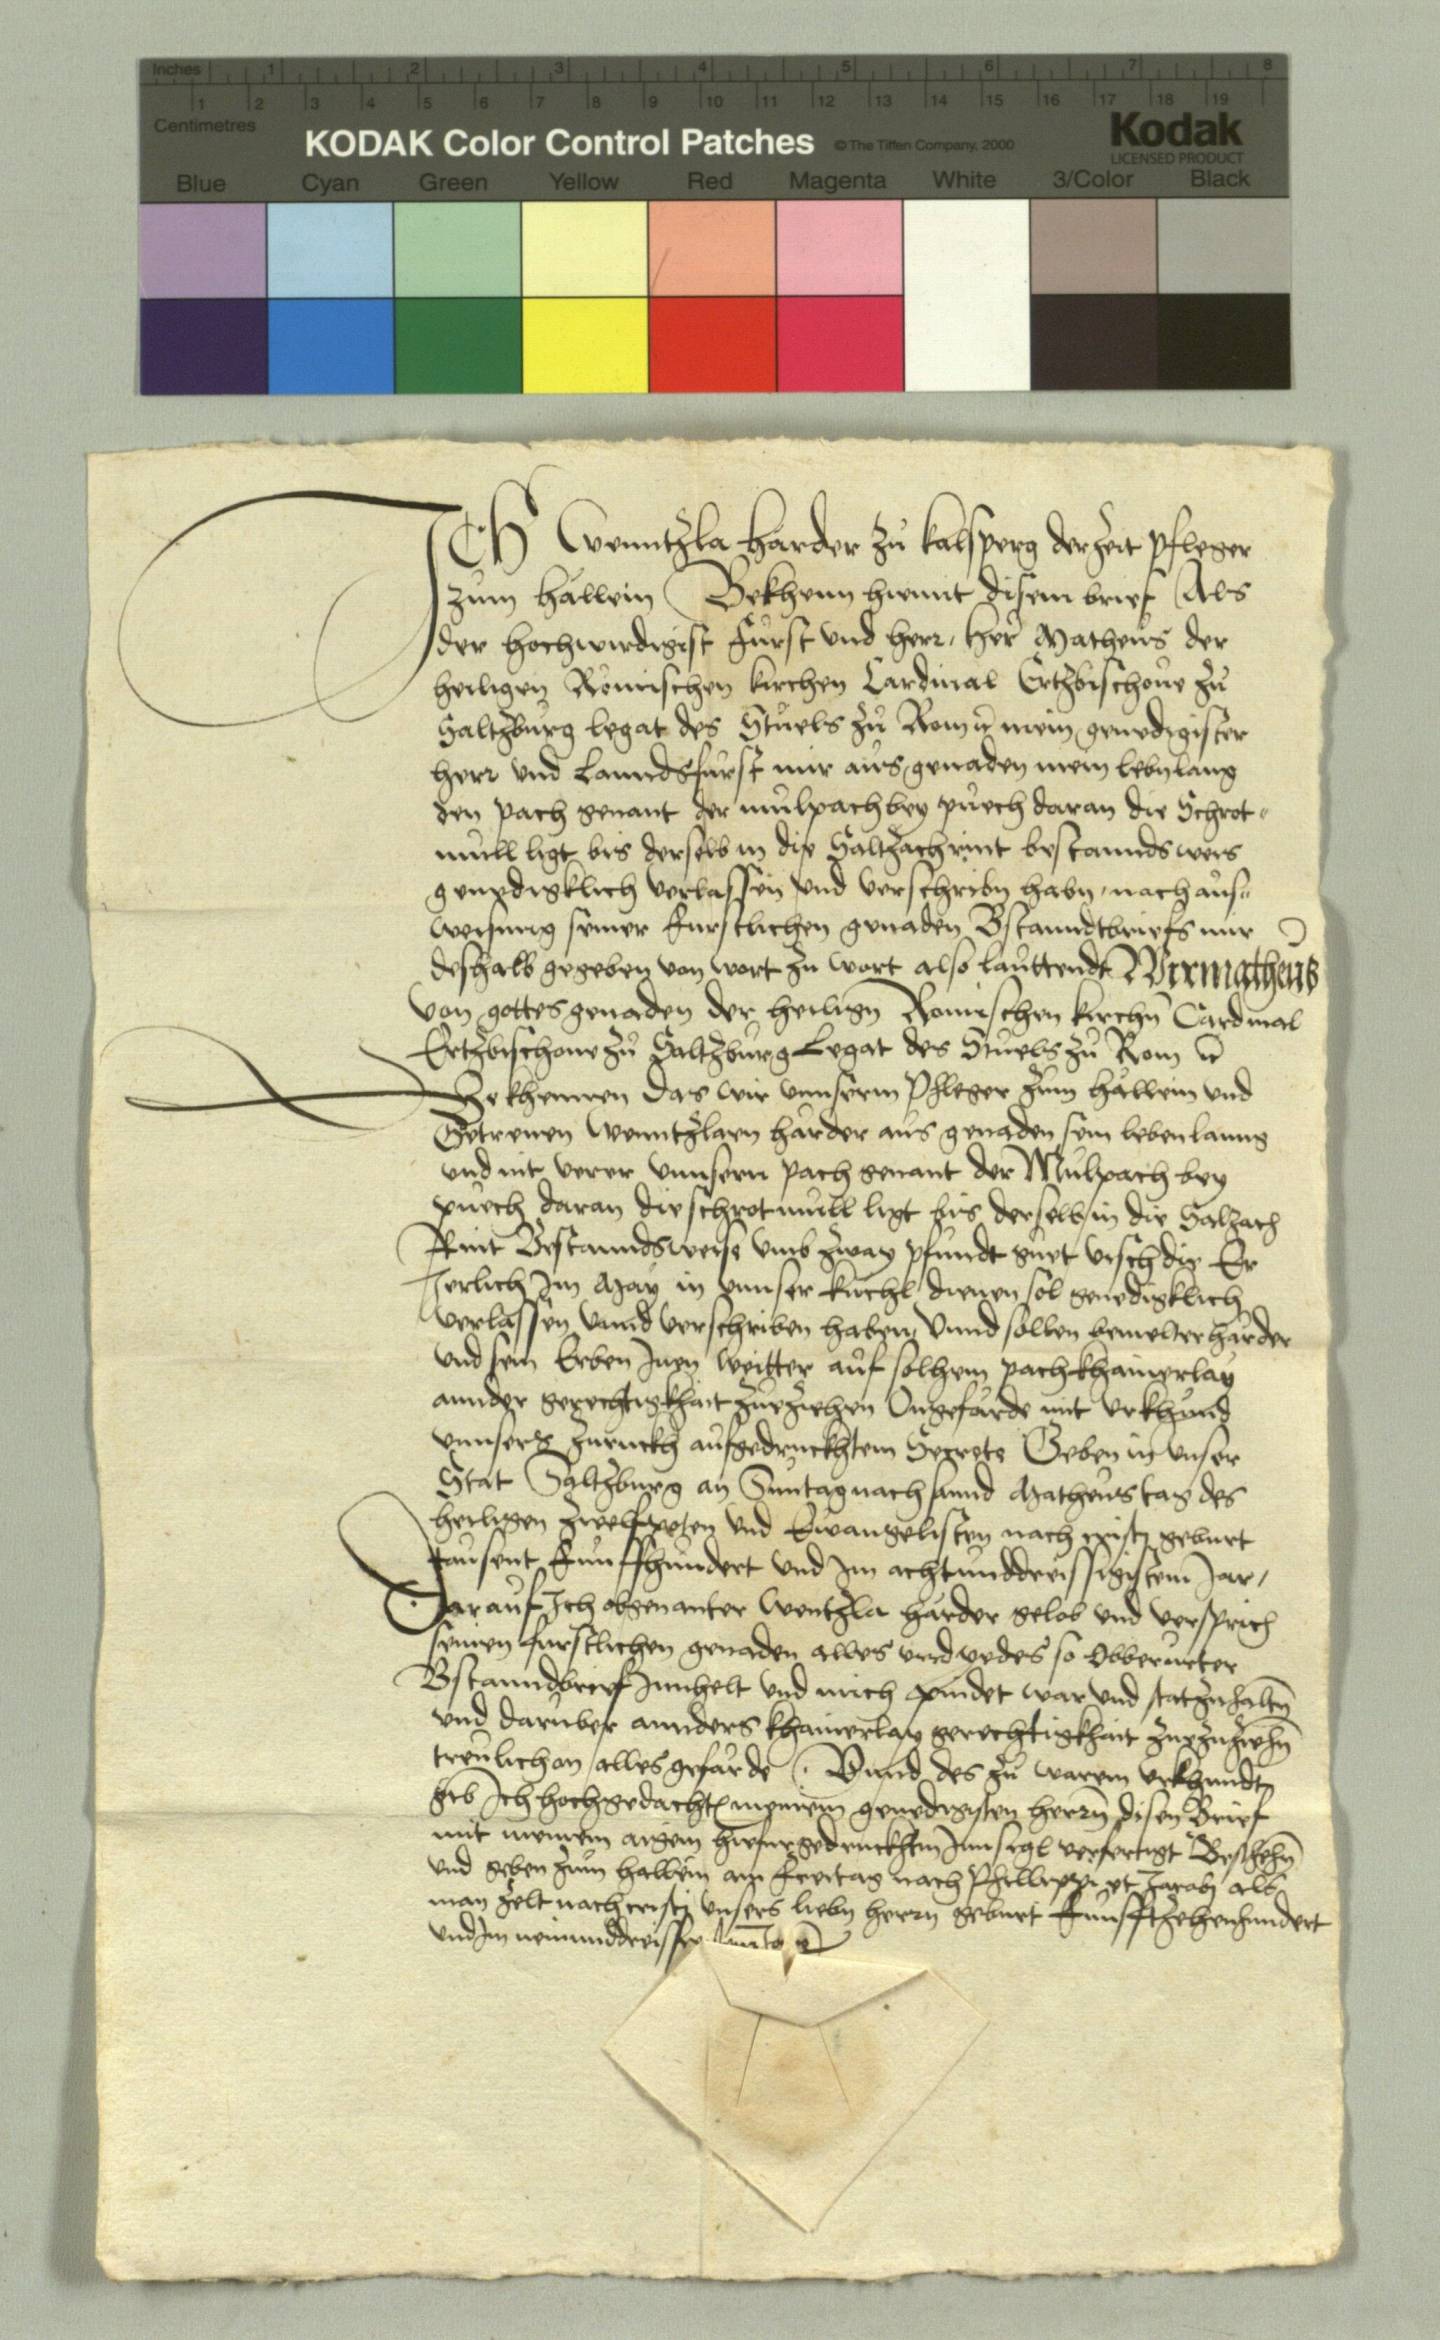 Inches 1 2 3 4 5 6 7 8
1 2 3 4 5 6 7 8 9 10 11 12 13 14 15 16 17 18 19
Centimetres
KODAK Color Control Patches © The Tiffen Company, 2000 Kodak
LICENSED PRODUCT
Blue Cyan Green Yellow Red Magenta White 3/Color Black
Ich Wenntzla Harder zu Kalsperg derzeit Pfleger
zum Hallein Bekhenn hiemit disem brief Als
der hochwirdigist Fürst und herr, her Matheus der
heiligen Römischen kirchen Cardinal Ertzbischove zu
Saltzburg legat des Stuels zu Rom mein genedigister
herr und Lanndsfürst mir aus genaden mein lebnlang
den pach genant der mülpach bey puech daran die Schrot-
müll ligt bis derselb in die Saltzach rint bestannds weis
genedigklich verlassen und verschribn habn, nach aus-
weisung seiner fürstlichen genaden Bstanndtbriefs mir
deshalb gegeben von wort zu wort also lauttendt Wir Matheus
von gottes genaden der heilign Romischen kirchn Cardinal
Ertzbischove zu Saltzburg Legat des Stuels zu Rom
Bekhennen das wir unnserm Pfleger zum Hallein und
Getreuen Wenntzlaen Härder aus genaden sein leben lanng
und nit verer unnsern pach genant der Mülpach bey
puech daran die schrotmüll ligt bis derselb in die Salzach
Rint Bestanndsweise umb zway pfundt guet visch die Er
Jerlich Im May in unnser kuchl dienen sol genedigklich
verlassen unnd verschriben haben, Unnd sollen bemelter Härder
und sein Erben Inen weitter auf solhem pach khainerlay
annder gerechtigkhait zueziehen Ongefärde mit urkhund
unnsers zuruckh aufgedruckhtem Secrets Geben in unser
Stat Saltzburg an Suntag nach sannd Matheus tag des
heiligen zwelfpoten und Ewangelisten nach cristi geburt
tausent Funffhundert und Im achtunddreissigistem Jar,
Darauf Ich obgenanter Wentzla Härder gelob und versprich
seinen fürstlichen genaden alles und yedes so Obberürter
Bstanndbrief Innhelt und mich pindet war und stat zu haltn
und darüber annders khainerlay gerechtigkhait zuezuziehn
treulich on alles gefärde. Unnd des zu warem urkhundt
gib Ich hochgedachtm meinem genedigisten herrn disen Brief
mit meinem aigem hiefürgedruckhtm Innsigl verfertigt Beschehn
und geben zum Hallein am Freitag nach Philippi et Jacobi als
man zelt nach cristi unsers liebn herrn geburt Funffzehenhundert
und Im neinunddreissi